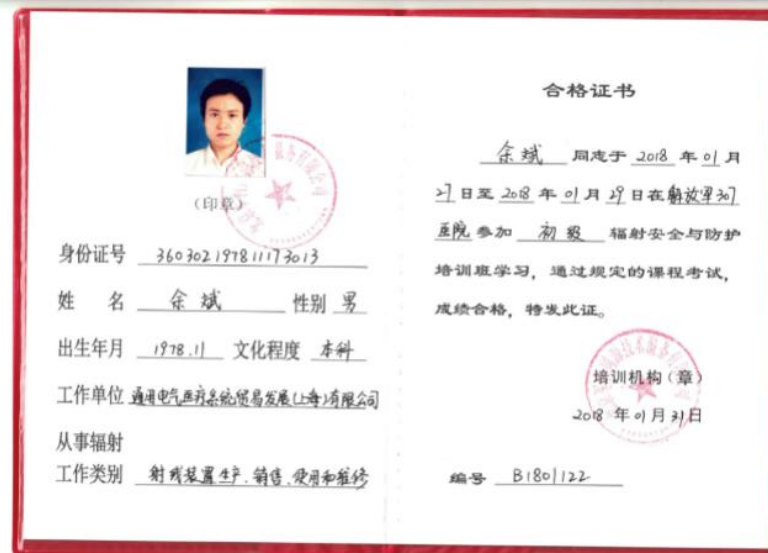 （印章）
身份证号 360302197811173013
姓 名 余斌 性别 男
出生年月 1978.11 文化程度 本科
工作单位 通用电气医疗系统贸易发展(上海)有限公司
从事辐射
工作类别 射线装置生产、销售、使用和维修
合格证书
余斌 同志于 2018 年 01 月
27 日至 2018 年 01 月 29 日在 解放军307
医院 参加 初级 辐射安全与防护
培训班学习，通过规定的课程考试，
成绩合格，特发此证。
培训机构（章）
2018 年 01 月 31 日
编号 B1801122